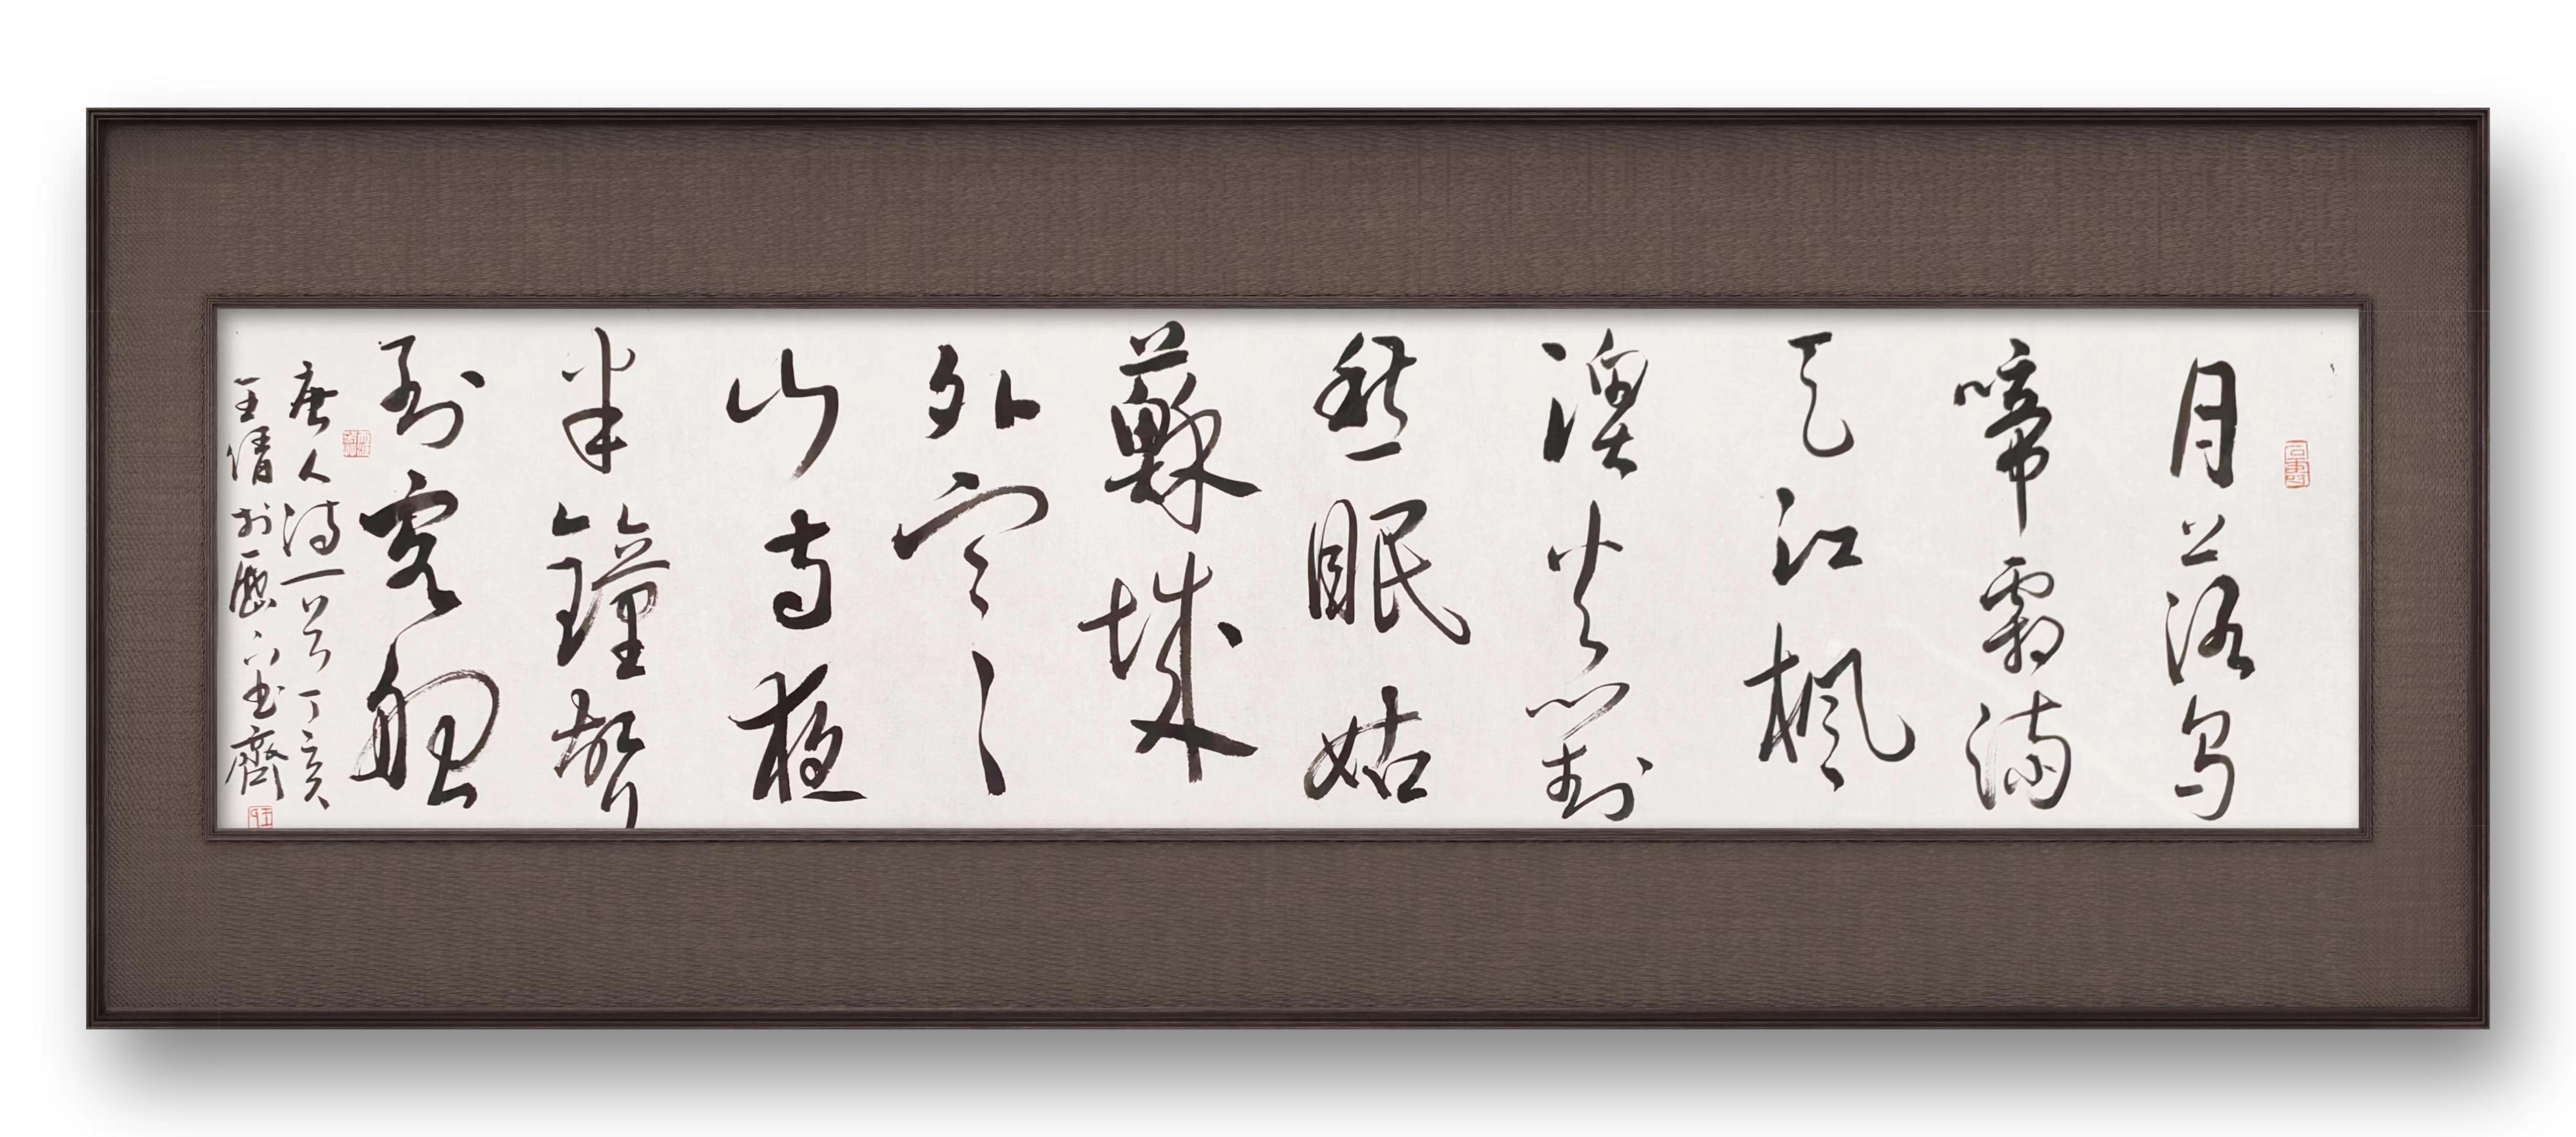 月落烏
啼霜滿
天江楓
漁火對
愁眠姑
蘇城
外寒
山寺夜
半鐘聲
到客船
唐人詩一首丁亥
王倩於歷下書齋